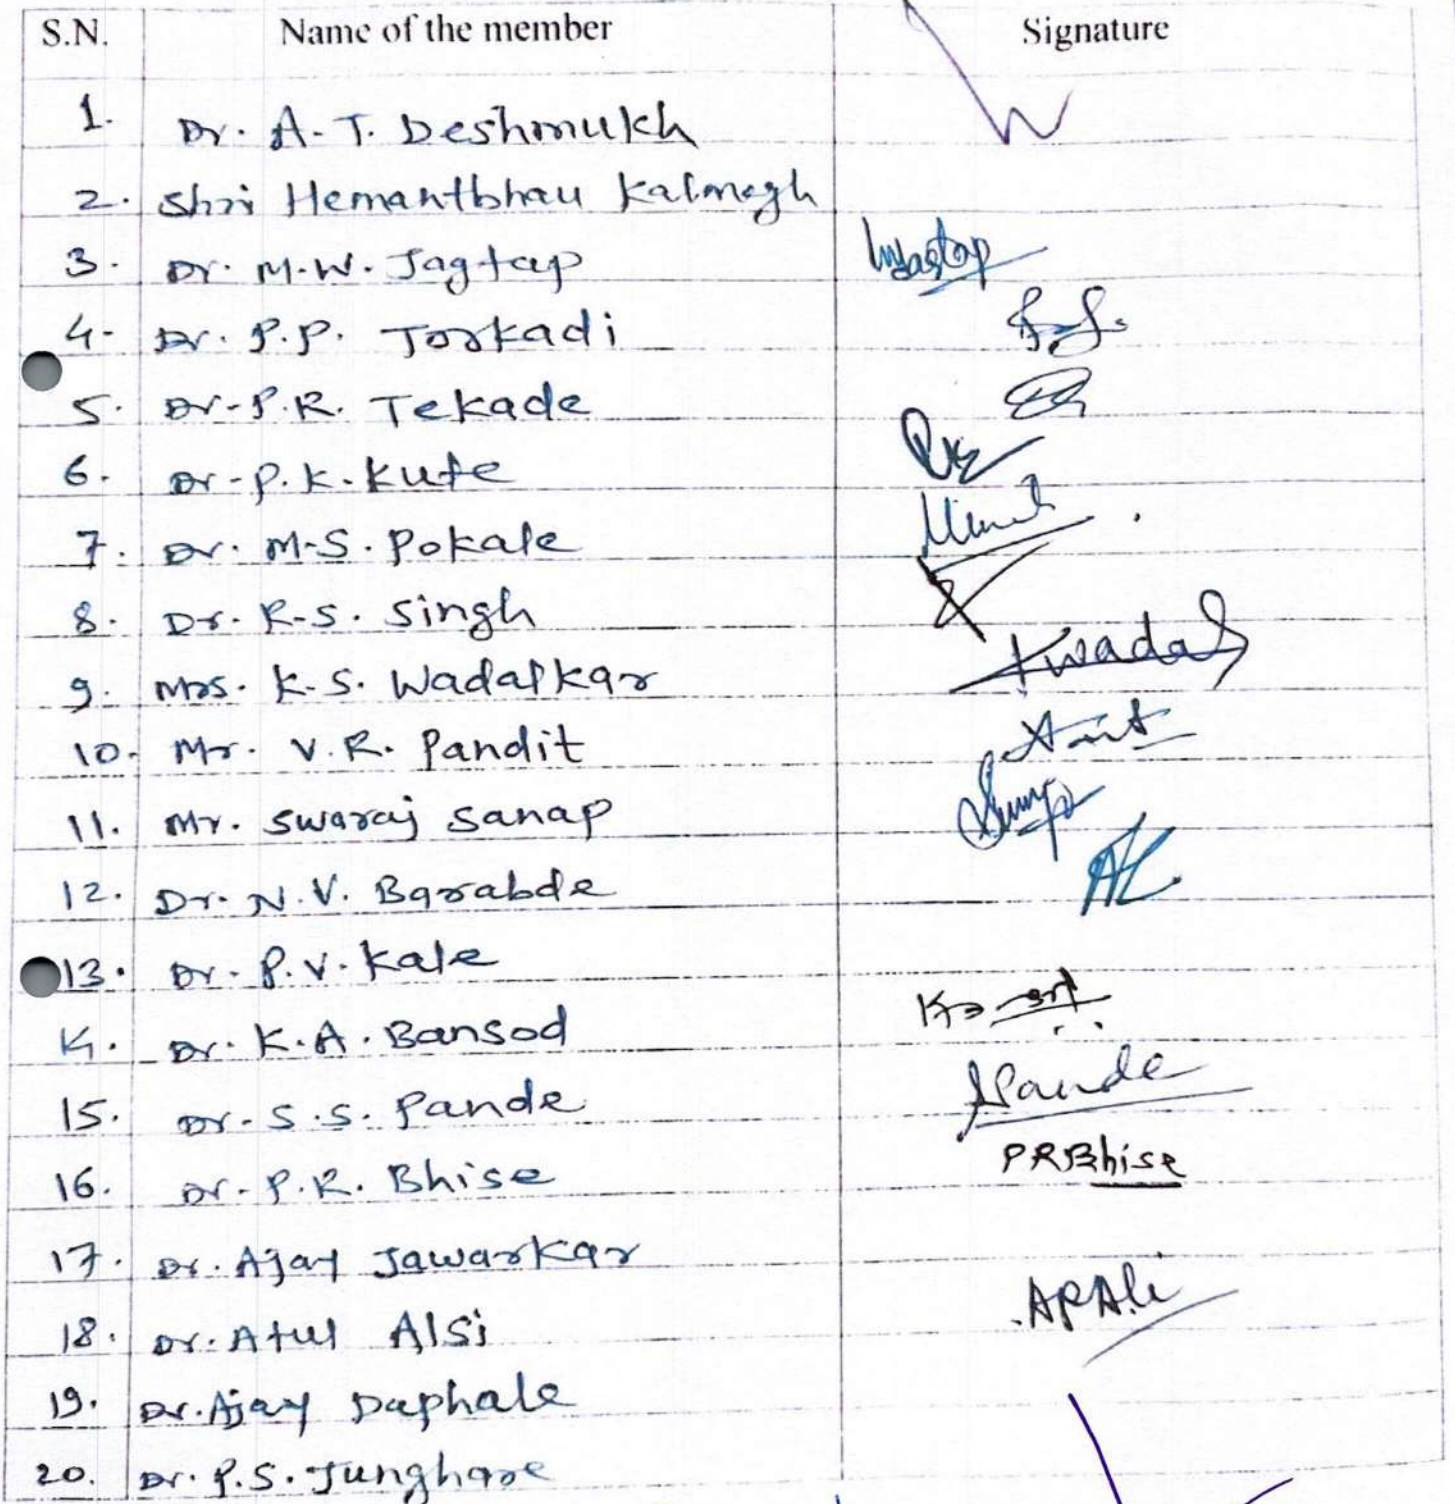 S.N. Name of the member Signature
1. Dr. A. T. Deshmukh
2. Shri Hemantbhau Kalmegh
3. Dr. M. W. Jagtap
4. Dr. P. P. Torkadi
5. Dr. P. R. Tekade
6. Dr. P. K. Kute
7. Dr. M. S. Pokale
8. Dr. R. S. Singh
9. Mrs. K. S. Wadalkar Kwada
10. Mr. V. R. Pandit
11. Mr. Swaraj Sanap
12. Dr. N. V. Barabde
13. Dr. P. V. Kale
14. Dr. K. A. Bansod
15. Dr. S. S. Pande SPande
16. Dr. P. R. Bhise PRBhise
17. Dr. Ajay Jawarkar
18. Dr. Atul Alsi
19. Dr. Ajay Daphale
20. Dr. P. S. Junghare